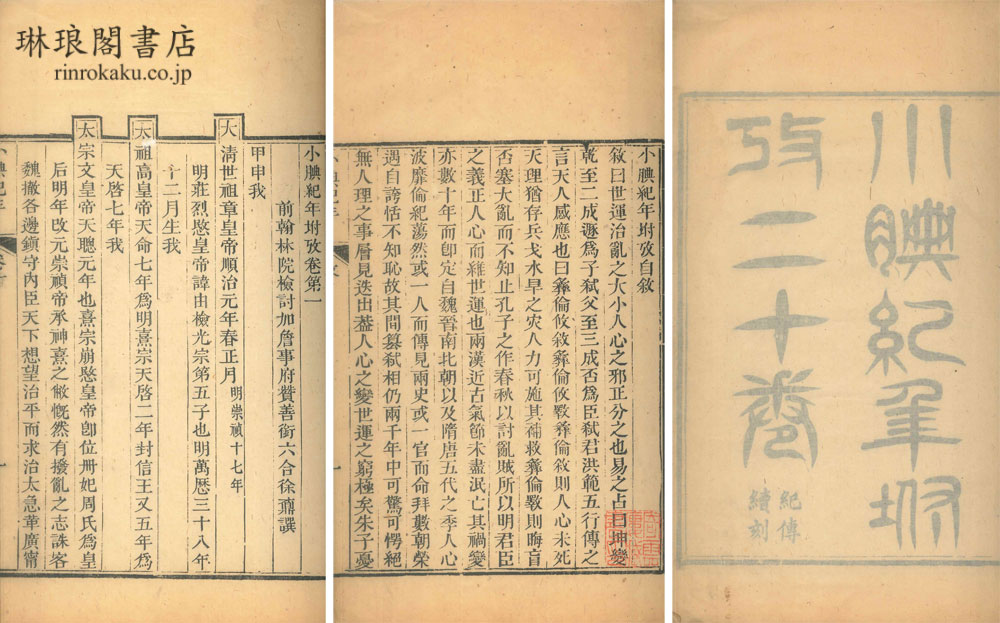 小腆紀年坿
攷二十卷
紀傳
續刻
小腆紀年坿攷自敘
敘曰世運治亂之大小人心之邪正分之也易之占曰坤變
乾至二成遯爲子弒父至三成否爲臣弒君洪範五行傳之
言天人感應也曰彝倫攸敘彝倫攸斁彝倫敘則人心未死
天理猶存兵戈水旱之灾人力可施其補救彝倫斁則晦盲
否塞大亂而不知止孔子之作春秋以討亂賊所以明君臣
之義正人心而維世運也兩漢近古氣節未盡泯亡其禍變
亦數十年而卽定自魏晉南北朝以及隋唐五代之季人心
波靡倫紀蕩然或一人而傳見兩史或一官而命拜數朝榮
遇自誇恬不知恥故其間簒弒相仍兩千年中可驚可愕絕
無人理之事層見迭出葢人心之變世運之窮極矣朱子憂
琳琅閣書店
rinrokaku.co.jp
小腆紀年坿攷卷第一
前翰林院檢討加詹事府贊善銜六合徐鼒譔
甲申我
大清世祖章皇帝順治元年春正月明崇禎十七年
明莊烈愍皇帝諱由檢光宗第五子也明萬歷三十八年
十二月生我
太祖高皇帝天命七年爲明熹宗天啓二年封信王又五年爲
天啓七年我
太宗文皇帝天聰元年也熹宗崩愍皇帝卽位冊妃周氏爲皇
后明年改元崇禎帝承神熹之敝慨然有撥亂之志誅客
魏撤各邊鎮守內臣天下想望治平而求治太急華廣甯